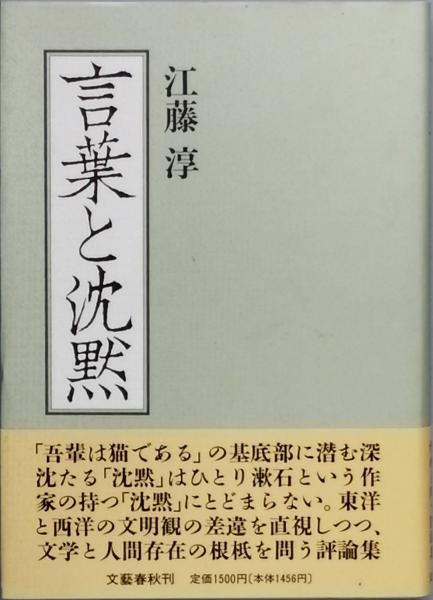 江藤淳
言葉と沈黙
「吾輩は猫である」の基底部に潜む深
沈たる「沈黙」はひとり漱石という作
家の持つ「沈黙」にとどまらない。東洋
と西洋の文明観の差違を直視しつつ、
文学と人間存在の根柢を問う評論集
文藝春秋刊 定価1500円〔本体1456円〕